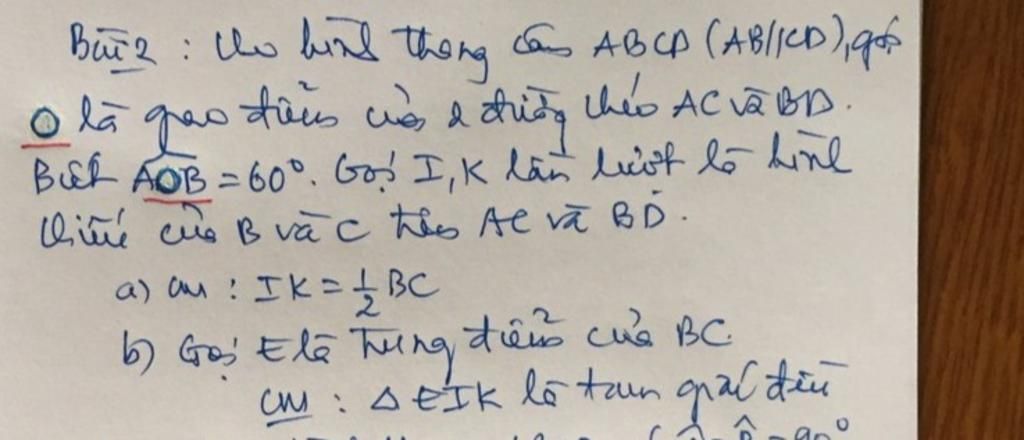 Bài 2 : Cho hình thang cân ABCD (AB//CD), gọi
O là giao điểm của 2 đường chéo AC và BD.
Biết AOB = 60°. Gọi I, K lần lượt là hình
chiếu của B và C trên AC và BD.
a) cm : IK = 1/2 BC
b) Gọi E là trung điểm của BC.
cm : Δ EIK là tam giác đều
= 90°